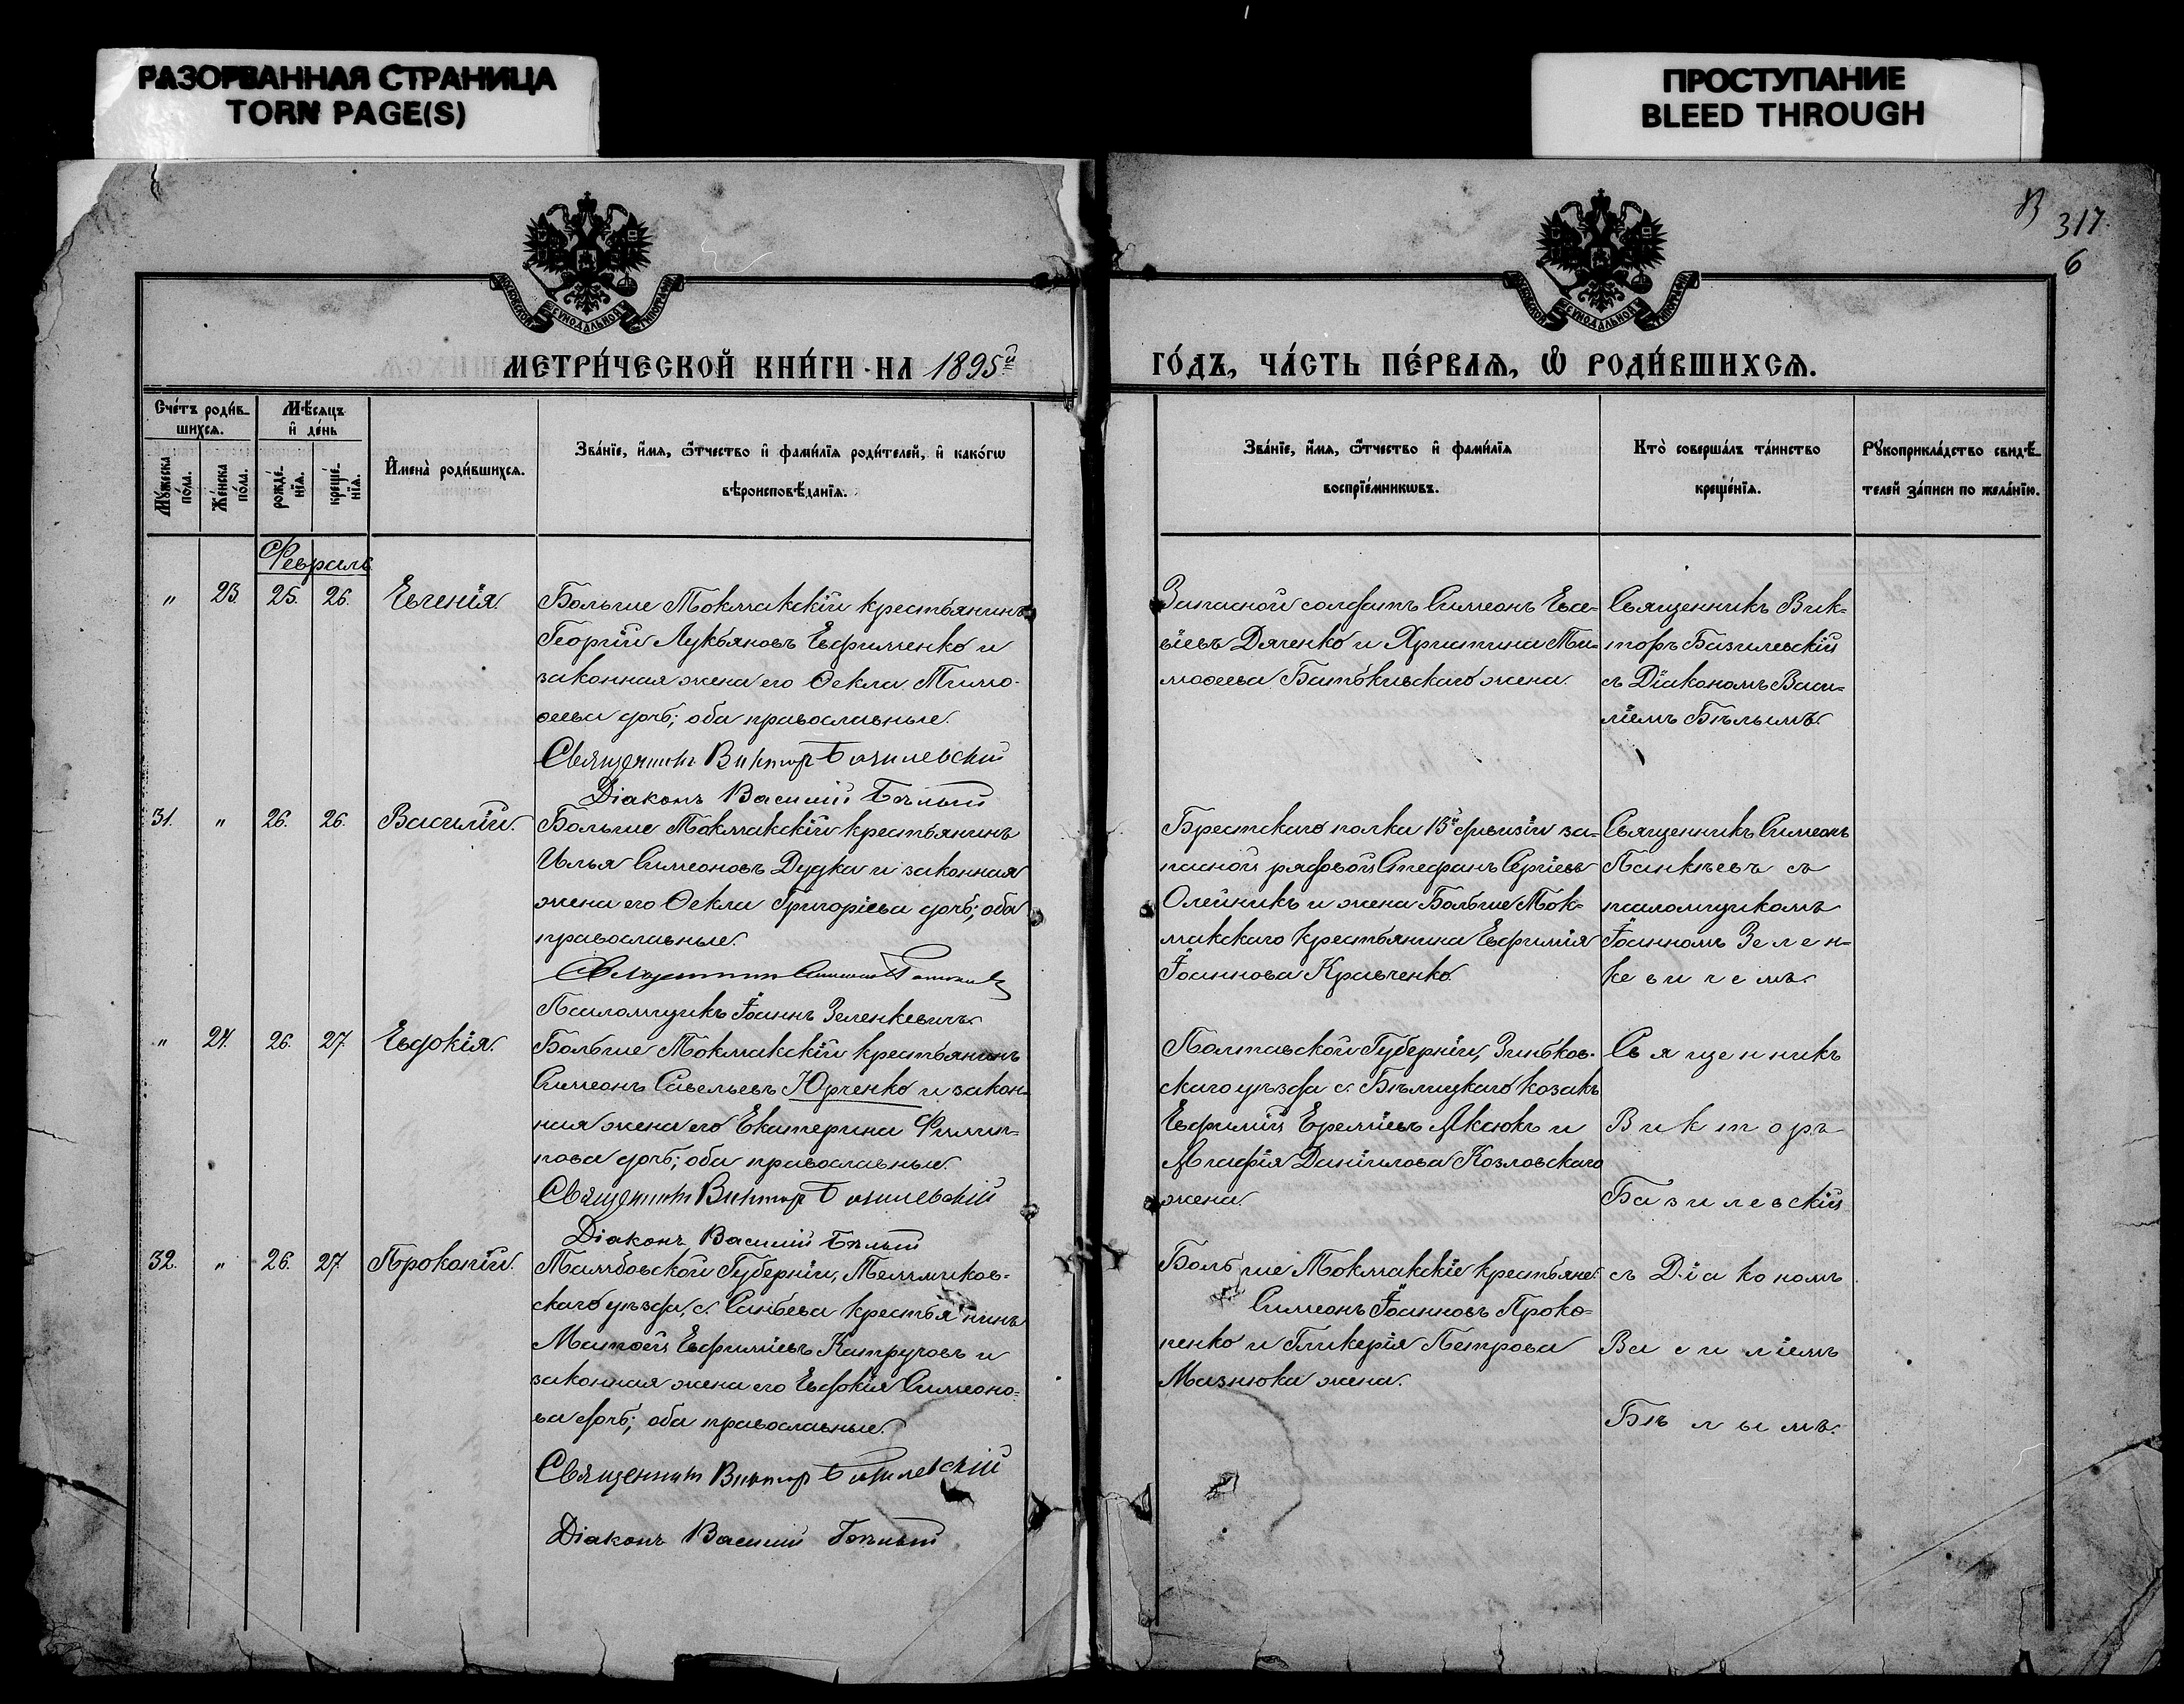 РАЗОРВАННАЯ СТРАНИЦА
TORN PAGE(S)
ПРОСТУПАНИЕ
BLEED THROUGH
317
6
МОСКОВСКОЙ СѴНОДАЛЬНОЙ ТИПОГРАФІИ
МОСКОВСКОЙ СѴНОДАЛЬНОЙ ТИПОГРАФІИ
МЕТРИ́ЧЕСКОЙ КНИ́ГИ НА 1895й
ГО́ДЪ, ЧА́СТЬ ПЕ́РВАѦ, Ѽ РОДИ́ВШИХСѦ.
Сче́тъ роди́в-
шихсѧ.
Мꙋ́жеска
по́ла.
Же́нска
по́ла.
Мѣ́сѧцъ
и҆ де́нь
рожде́-
нїѧ.
креще́-
нїѧ.
И҆мена̀ роди́вшихсѧ.
Зва́нїе, и҆́мѧ, ѻ҆́тчество и҆ фами́лїѧ роди́телей, и҆ како́гѡ
вѣроисповѣ́данїѧ.
Зва́нїе, и҆́мѧ, ѻ҆́тчество и҆ фами́лїѧ
воспрїе́мникѡвъ.
Кто̀ соверша́лъ та́инство
креще́нїѧ.
Рꙋкоприкла́дство свидѣ́-
телей за́писи по жела́нїю.
Февраль
" 23. 25. 26. Евгенія.
Больше Токмакскій крестьянинъ
Георгій Лукьяновъ Ефименко и
законная жена его Ѳекла Тимо-
ѳеева дочь; оба православные.
Священникъ Викторъ Базилевскій
Діаконъ Василій Бѣлый
Запасной солдатъ Симеонъ Евсе-
віевъ Дяченко и Христина Ти-
моѳеева Батьківскаго жена.
Священникъ Вик-
торъ Базилевскій
съ Діакономъ Васи-
ліемъ Бѣлымъ.
31. " 26. 26. Василій.
Больше Токмакскій крестьянинъ
Илья Симеоновъ Дудка и законная
жена его Ѳекла Григоріева дочь; оба
православные.
Священникъ Симеонъ Панкѣевъ
Псаломщикъ Іоаннъ Зеленкевичъ.
Брестскаго полка 13й дивизіи за-
пасной рядовой Стефанъ Сергіевъ
Олейникъ и жена Больше Ток-
макскаго крестьянина Евфимія
Іоаннова Кравченко.
Священникъ Симеонъ
Панкѣевъ съ
псаломщикомъ
Іоанномъ Зелен-
кевичемъ.
" 24. 26. 27. Евдокія.
Больше Токмакскій крестьянинъ
Симеонъ Савельевъ Юрченко и закон-
ная жена его Екатерина Филип-
пова дочь; оба православные.
Священникъ Викторъ Базилевскій
Діаконъ Василій Бѣлый
Полтавской Губерніи, Зиньков-
скаго уѣзда с. Бѣлицкаго козакъ
Евфимій Ереміевъ Аксюкъ и
Агафія Даніилова Козловскаго
жена.
Священникъ
Викторъ
Базилевскій
съ Діакономъ
Василіемъ
Бѣлымъ.
32. " 26. 27. Прокопій.
Тамбовской Губерніи, Темников-
скаго уѣзда, с. крестьянинъ
Матѳей Евфиміевъ Катруховъ и
законная жена его Евдокія Симеоно-
ва дочь; оба православные.
Священникъ Викторъ Базилевскій
Діаконъ Василій Бѣлый
Больше Токмакскіе крестьяне:
Симеонъ Іоанновъ Проко-
пенко и Гликерія Петрова
Мазнюка жена.